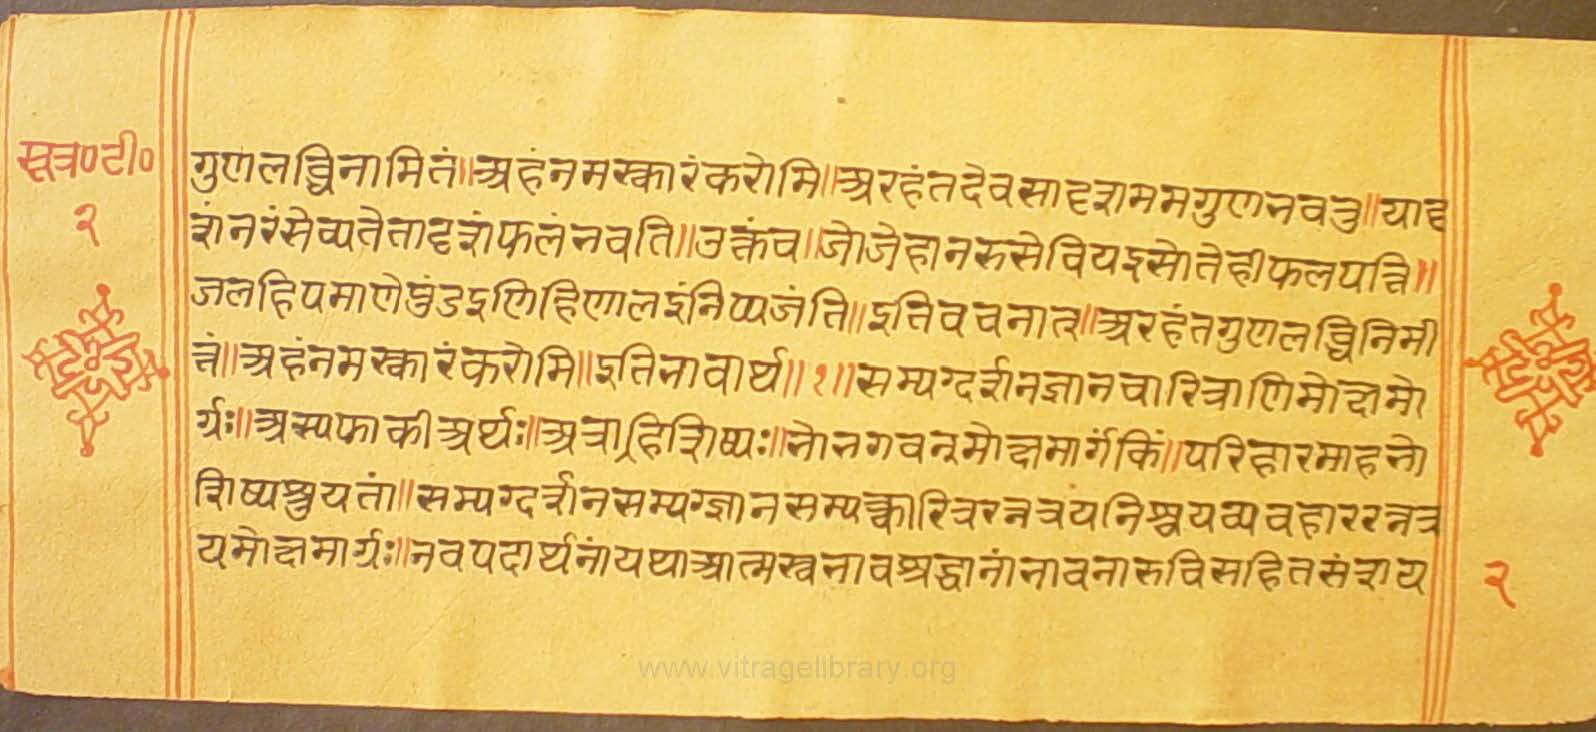 सूत्र०टी०
२
गुणलब्धिनामितं॥अहंनमस्कारंकरोमि॥अरहंतदेवसादृशममगुणभवतु॥यादृ
शंनरंसेव्यतेतादृशंफलंभवति॥उक्तंच॥जोजेहानरुसेवियइसोतेहीफलपत्ति॥
जलहिपमाणेपुंडइणिहिणालइंनिप्पजंति॥इतिवचनात्॥अरहंतगुणलब्धिनिमी
त्तं॥अहंनमस्कारंकरोमि॥इतिभावार्थ॥१॥सम्यग्दर्शनज्ञानचारित्राणिमोक्षमा
र्गः॥अस्यफाकीअर्थः॥अत्राहिशिष्यः॥भोभगवन्मोक्षमार्गंकिं॥परिहारमाहभो
शिष्यश्रुयतां॥सम्यग्दर्शनसम्यग्ज्ञानसम्यक्चारित्ररत्नत्रयनिश्चयव्यवहाररत्नत्र
यमोक्षमार्गः॥नवपदार्थनांयथाआत्मस्वभावश्रद्धानांभावनारुचिसहितसंशय
२
www.vitragelibrary.org